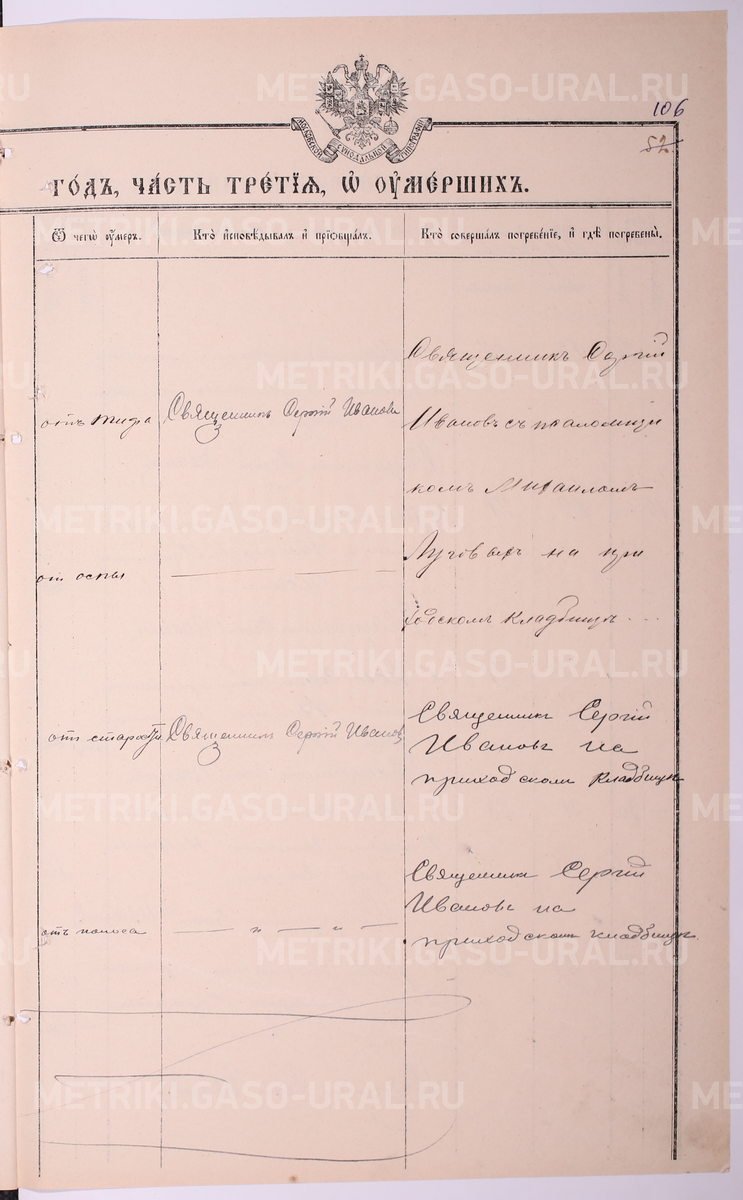 106
52
МОСКОВСКОЙ СѴНОДАЛЬНОЙ ТИПОГРАФІИ
ГО́ДЪ, ЧА́СТЬ ТРЕ́ТІѦ, Ѡ҆ ОУ҆МЕ́РШИХЪ.
Ѿ чегѡ̀ ᲂу҆́меръ.
Кто̀ и҆сповѣ́дывалъ и҆ прїѻбща́лъ.
Кто̀ соверша́лъ погребе́нїе, и҆ гдѣ̀ погребены̀.
отъ тифа
Священникъ Сергій Ивановъ
Священникъ Сергій
Ивановъ съ псаломщи
комъ Михаиломъ
Луговыхъ на при
ходскомъ кладбищѣ
от оспы
отъ старости
Священникъ Сергій Ивановъ
Священникъ Сергій
Ивановъ на
приходскомъ кладбищѣ
отъ поноса
— „ — „ —
Священникъ Сергій
Ивановъ на
приходскомъ кладбищѣ
METRIKI.GASO-URAL.RU